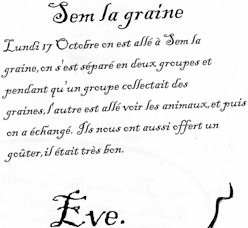 Sem la graine
Lundi 17 Octobre on est allé à Sem la
graine, on s'est séparé en deux groupes et
pendant qu'un groupe collectait des
graines, l'autre est allé voir les animaux, et puis
on a échangé. Ils nous ont aussi offert un
goûter, il était très bon.
Eve.